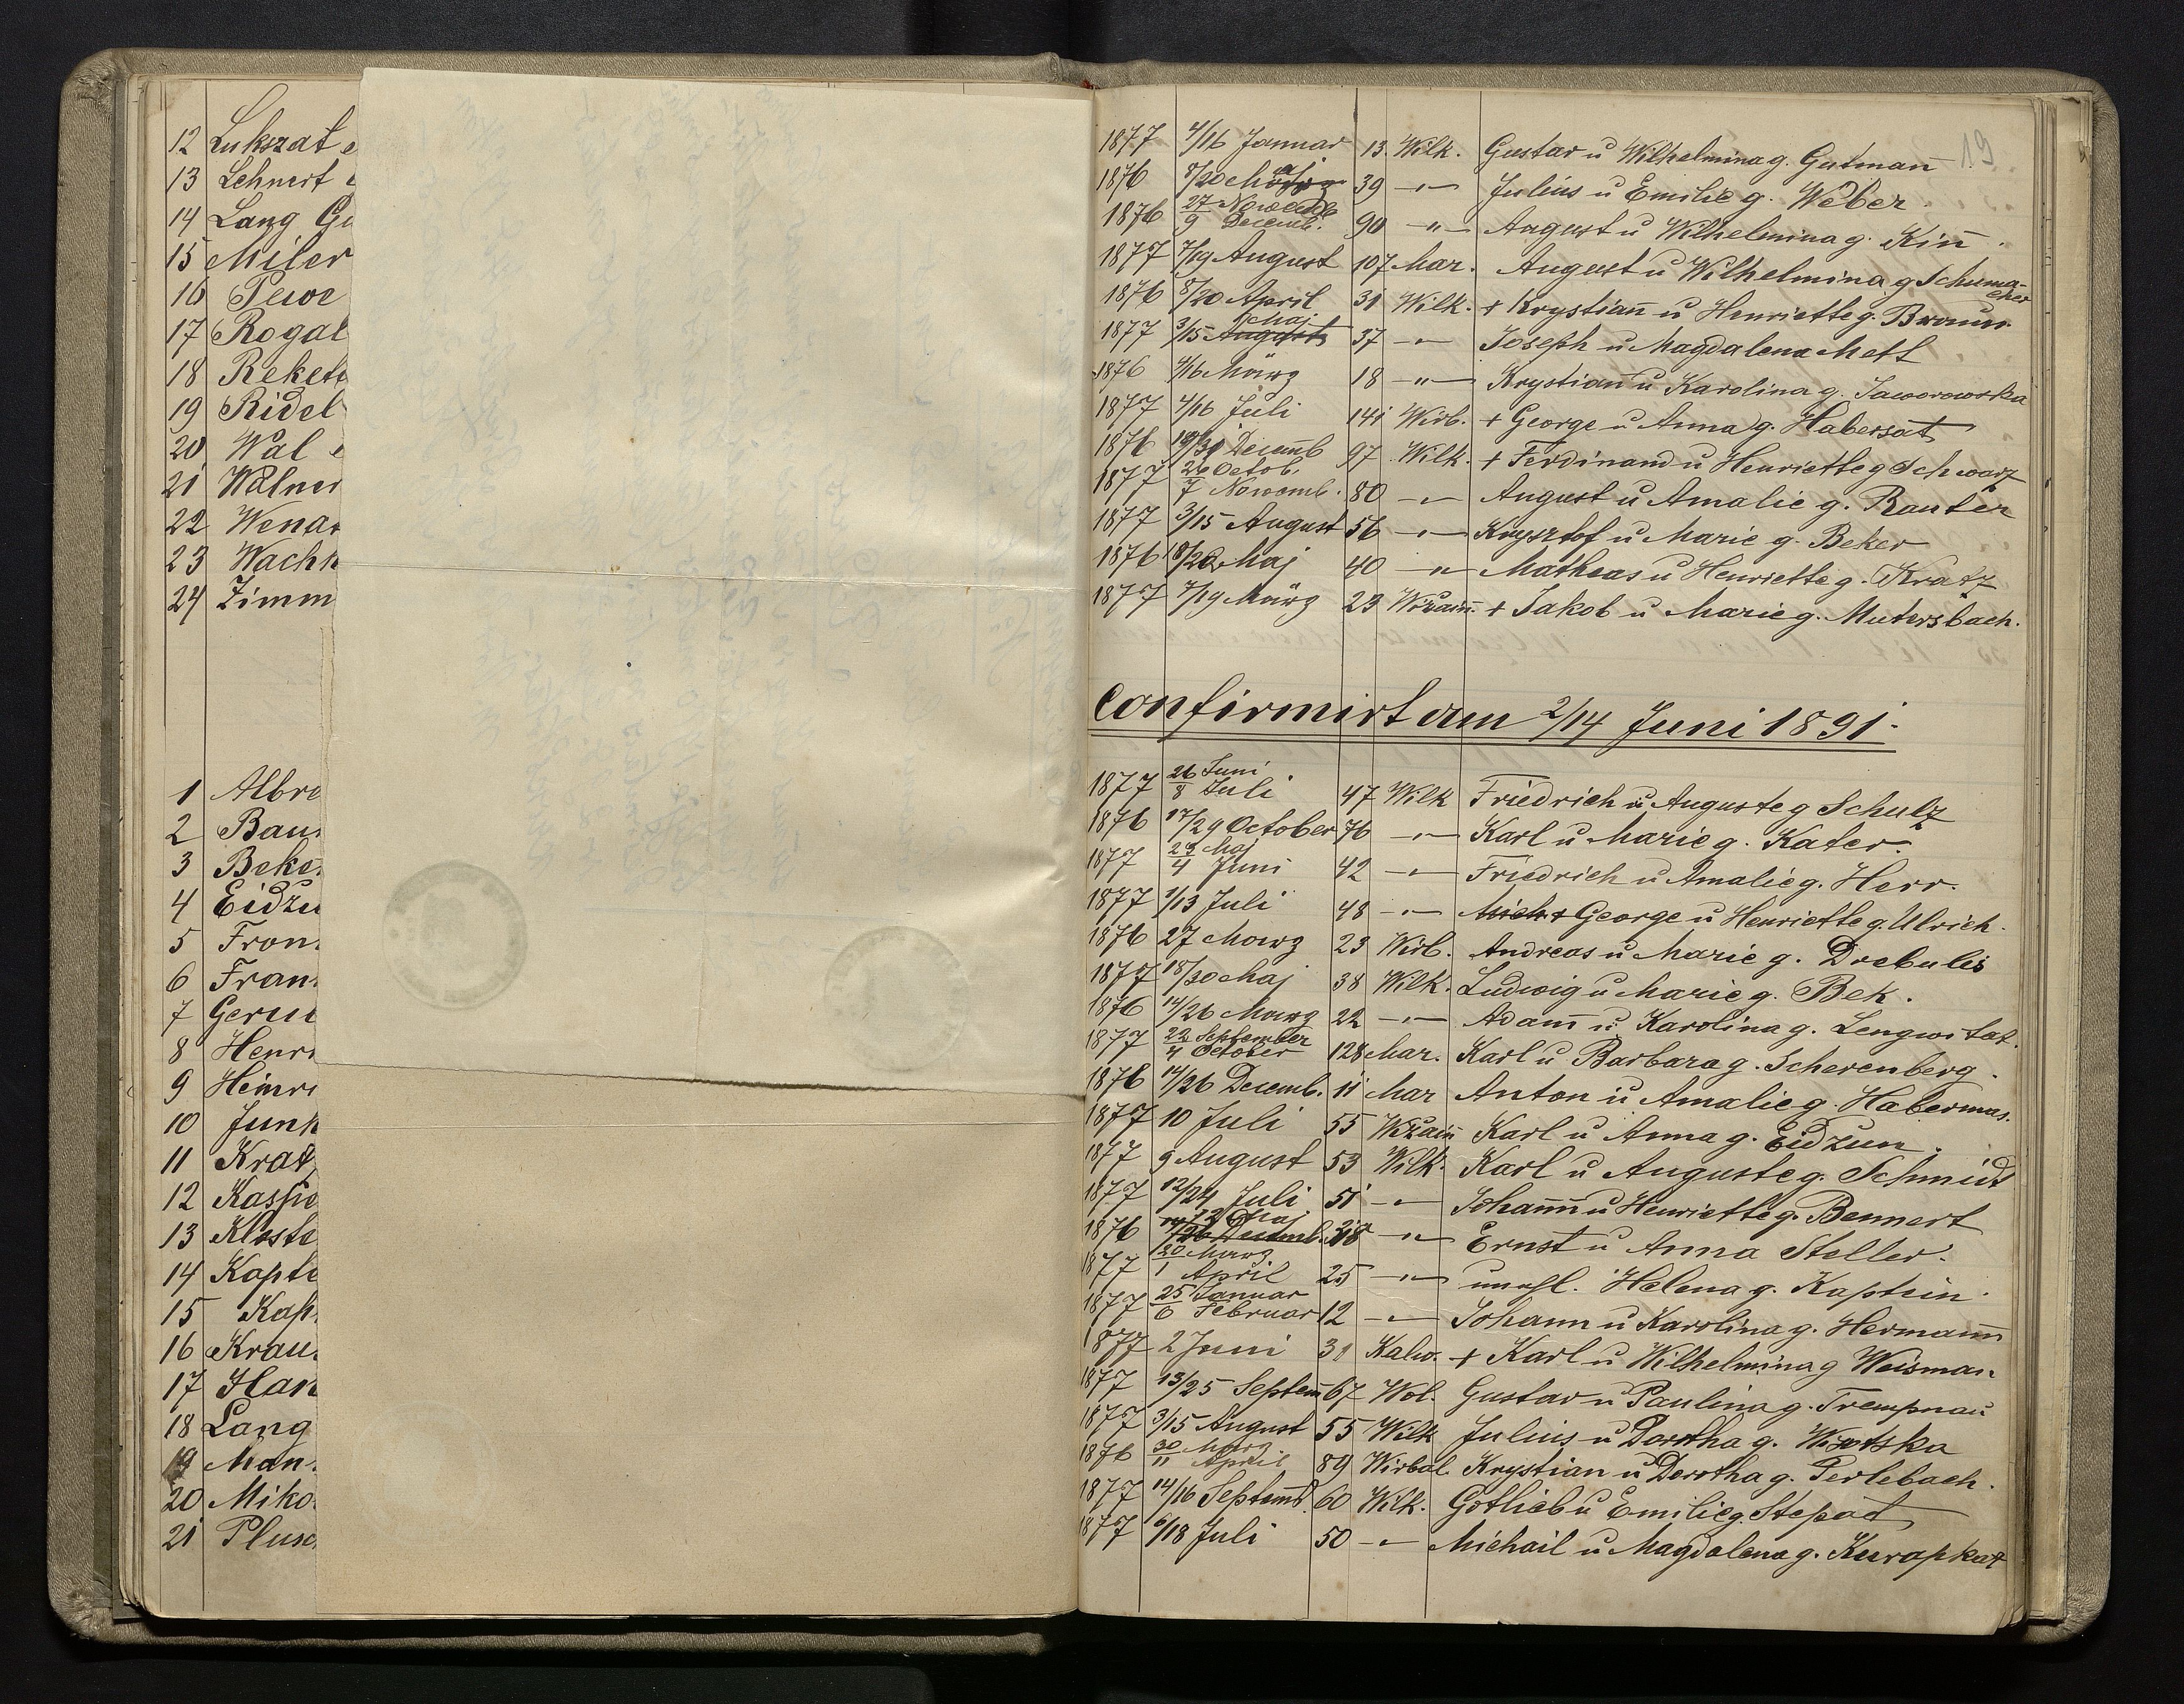 12 Lukszat
13 Lehnert
14 Lang
15 Miler
16
17 Rogal
18
19 Ridel
20 Wal
21 Walner
22
23
24 Zimm
1 Albre
2
3
4 Eidzu
5
6
7
8
9
10
11 Krat
12
13
14
15
16
17
18 Lang
19
20 Miko
21
19
1877 4/16 Januar 13 Wilk. Gustav u Wilhelmina g. Gutman̄
1876 8/20 39 -"- Julius u Emilie g. Weber.
1876 27/9 Decemb. 90 -"- August u Wilhelmina g. Kin̄.
1877 7/19 August 107 Mar. August u Wilhelmina g Schuma-
cher
1876 8/20 April 31 Wilk. + Krystian̄ u Henriette g. Braun.
Maj
1877 3/15 August 37 -"- Joseph u Magdalena Mett
1876 4/16 März 18 -"- Krystian̄ u Karolina g. Jaworowska
1877 4/16 Juli 141 Wirb. + George u Anna g. Habersat
1876 Decemb 97 Wilk. + Ferdinand u Henriette g Schwarz
1877 26 Octob. / 7 Novemb. 80 -"- August u Amalie g. Rauter
1877 3/15 August 56 -"- Krysztof u Marie g. Beker
1876 Maj 40 -"- Matheas u Henriette g. Kratz
1877 7/19 März 23 + Jakob u Marie g. Mutersbach.
Confirmirt am 2/14 Juni 1891.
1877 26 Juni / 8 Juli 47 Wilk Friedrich u Auguste g Schulz
1876 17/29 October 76 -"- Karl u Marie g. Kater.
1877 23 Maj / 4 Juni 42 -"- Friedrich u Amalie g. Herr.
1877 1/13 Juli 48 -"- + George u Henriette g. Ulrich.
1876 27 März 23 Wirb. Andreas u Marie g. Drebulis
1877 18/30 Maj 38 Wilk. Ludwig u Marie g. Bek.
1876 14/26 März 22 -"- Adam̄ u Karolina g. Lengwitat.
1877 22 September / 4 October 128 Mar. Karl u Barbara g. Scherenberg.
1876 14/26 Decemb. 11 Mar Anton u Amalie g. Habermas.
1877 10 Juli 55 Karl u Anna g. Eidzun.
1877 9 August 53 Wilk. Karl u Auguste g. Schmidt
1877 12/24 Juli 51 -"- Johan̄n u Henriette g. Bennert
1876 Maj -"- Ernst u Anna Steller.
1877 20 März / 1 April 25 -"- unehl. Helena g. Kaptein.
1877 25 Januar / 6 Februar 12 -"- Johann u Karolina g. Herman̄n
1877 2 Juni 31 Kalw. + Karl u Wilhelmina g Weisman
1877 13/25 Septem̄ 67 Wol. Gustav u Paulina g. Trempnau
1877 3/15 August 55 Wilk Julius u Dorotha g.
1876 30 März / 11 April 89 Wirbal. Krystian u Dorotha g. Perlebach.
1877 14/16 Septemb. 60 Wilk. Gotlieb u Emilie g. Stepat
1877 6/18 Juli 50 -"- Michail u Magdalena g. Kurapkat